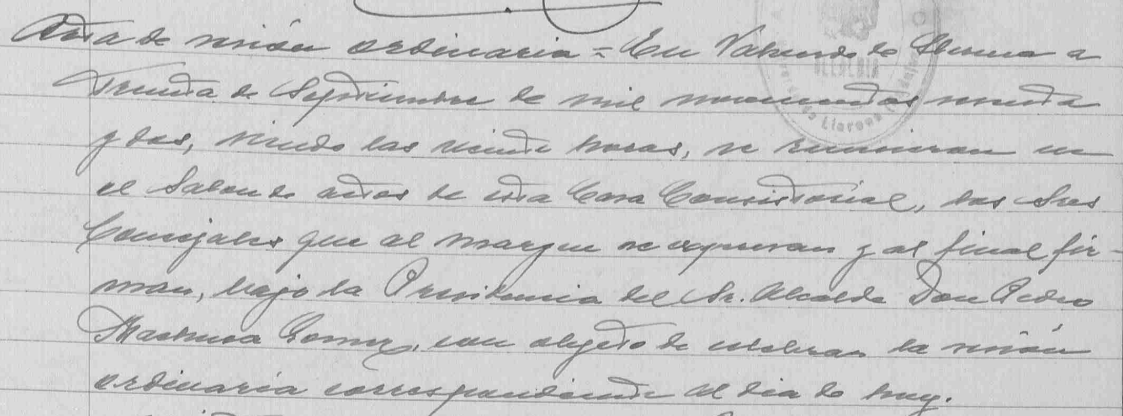 Acta de sesión ordinaria = En Valverde de Llerena a
Treinta de Septiembre de mil novecientos sesenta
y dos, siendo las veinte horas, se reunieron en
el Salon de actos de esta Casa Consistorial, los Sres
Concejales que al margen se expresan y al final fir-
man, bajo la Presidencia del Sr. Alcalde Don Pedro
Gomez, con objeto de celebrar la sesión
ordinaria correspondiente al dia de hoy.